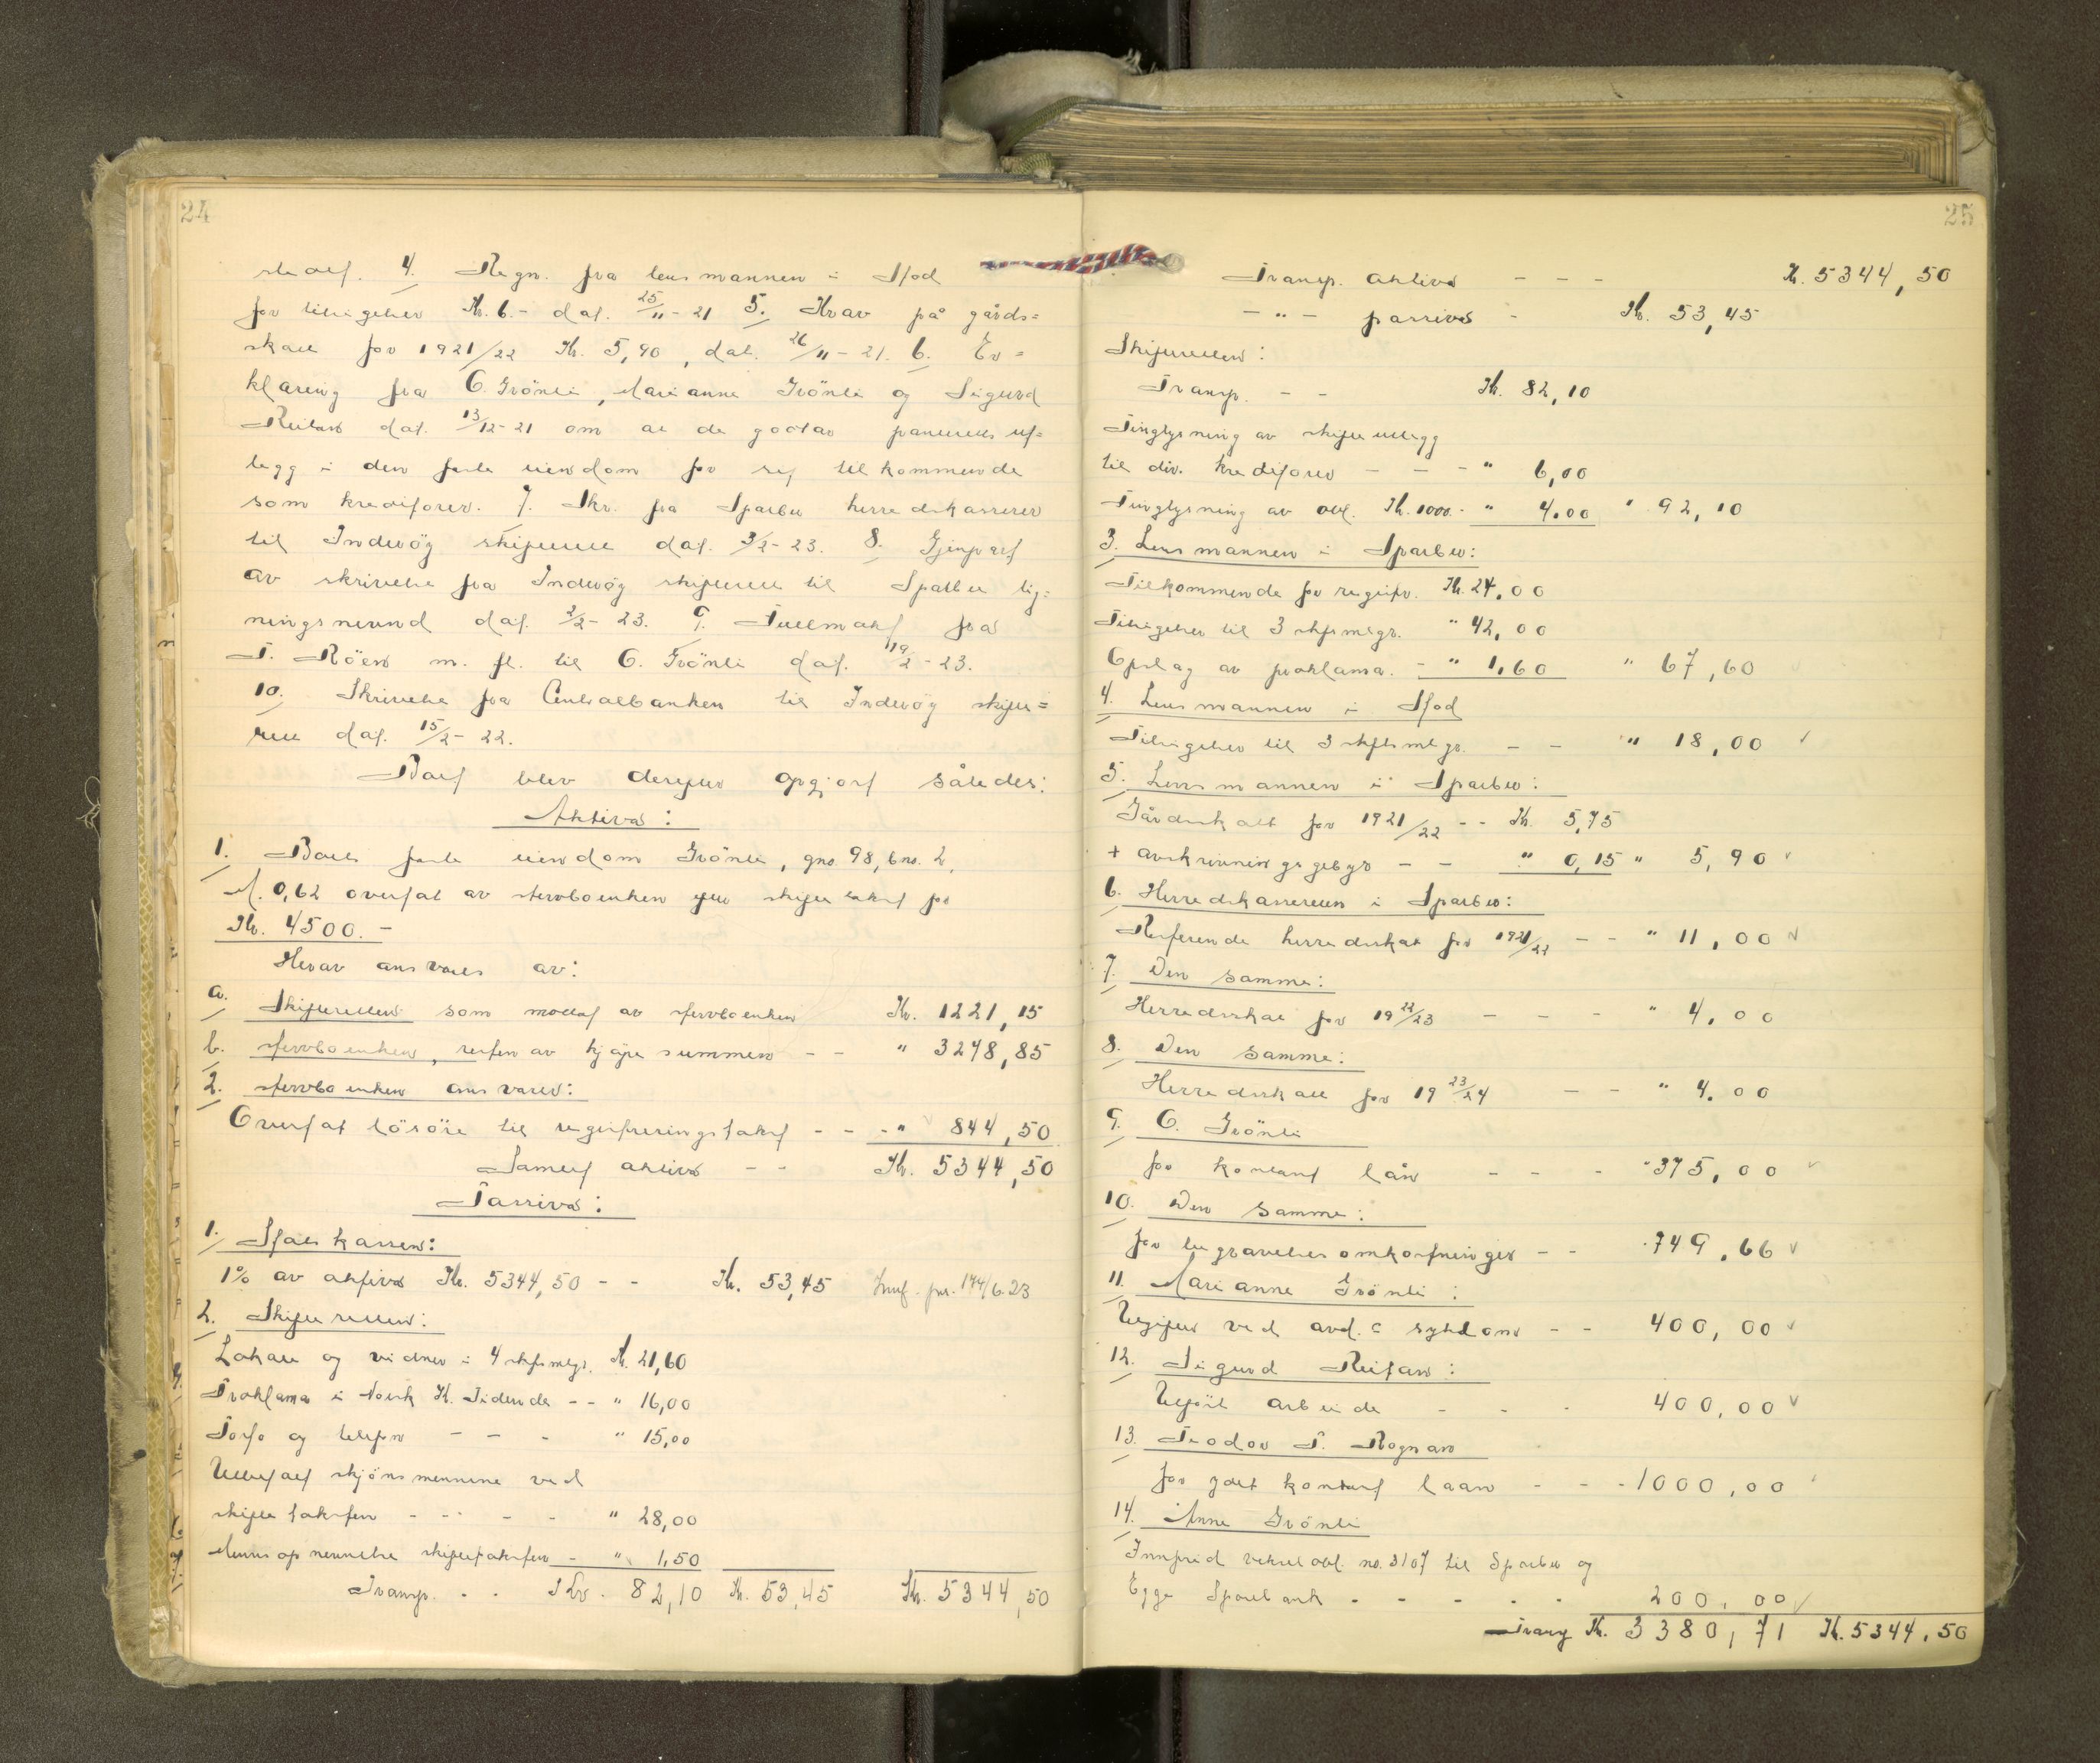 24
sted. 4. Regn. fra lensmannen i Stod
for tilsigelser Kr. 6.- dat. 25/11-21 5. Krav på gårds=
skatt for 1921/22 Kr. 5,90, dat. 26/11-21. 6. Er=
klæring fra O. Grönli, Marianne Grönli og Sigurd
Reitan dat. 13/12-21 om at de godtar panterett ut=
legg i den faste eiendom for sig tilkommende
som kreditorer. 7. Skr. fra Sparbu herredskasserer
til Inderøy skifterett dat. 3/2-23. 8. Gjenpart
av skrivelse fra Inderøy skifterett til Sparbu lig=
ningsnevnd dat. 2/2-23. 9. Fullmakt fra
T. Röen m. fl. til O. Grönli dat. 19/2-23.
10. Skrivelse fra Centralbanken til Inderøy skifte=
rett dat. 15/2-22.
Boet blev derefter opgjort således:
Aktiva:
1. Boets faste eiendom Grönli, gno. 98, bno. 2,
M. 0,62 overtat av stervboenken efter skiftetakst for
Kr. 4500.-
Herav ansvares av:
a. Skifteretten som mottat av stervboenken Kr. 1221,15
b. stervboenken, resten av kjøpesummen - - " 3278,85
2. stervboenken ansvarer:
Overtat lösöre til registreringstakst - - - " 844,50
Samlet aktiva - - Kr. 5344,50
Passiva:
1. Statskassen:
1% av aktiva Kr. 5344,50 - - Kr. 53,45
2. Skifteretten:
Lokale og vidner i 4 skfsmlgr. Kr. 21,60
Proklama i Norsk K. Tidende - - " 16,00
Porto og telefon - - - " 15,00
Utbetalt skjönsmennene ved
skiftetaksten - - - - " 28,00
Menns opnevnelse skiftetaksten - " 1,50
Transp. - - Kr. 82,10 Kr. 53,45 Kr. 5344,50
25
Transp. aktiva - - - Kr. 5344,50
- " - passiva - Kr. 53,45
Skifteretten:
Transp. - - Kr. 82,10
Tinglysning av skifteutlegg
til div. kreditorer - - - " 6,00
Tinglysning av obl. Kr. 1000.- " 4.00 " 92,10
3. Lensmannen i Sparbu:
Tilkommende for registr. Kr. 24.00
Tilsigelser til 3 skfsmlgr. " 42,00
Opslag av proklama. - " 1,60 " 67,60
4. Lensmannen i Stod
Tilsigelser til 3 skftsmlgr. - - " 18,00
5. Lensmannen i Sparbu:
Gårdskatt for 1921/22 - - Kr. 5,75
+ avskrivningsgebyr - - " 0,15 " 5,90
6. Herredskassereren i Sparbu:
Resterende herredskat for 1921/22 - - " 11,00
7. Den samme:
Herredsskat for 1922/23 - - - " 4.00
8. Den samme:
Herredskatt for 1923/24 - - " 4.00
9. O. Grönli
for kontant lån - - - " 375,00
10. Den samme:
for begravelsesomkostninger - - 749.66
11. Marianne Grönli:
Utgifter ved avd.s sykdom - - 400,00
12. Sigurd Reitan:
Utfört arbeide - - - 400,00
13. Teodor P. Rognan
for ydet kontant laan - - - 1000,00
14. Anne Grönli
Innfrid veksel obl. no. 3107 til Sparbu og
Egge Sparebank - - - - - 200,00
Transp Kr. 3380,71 Kr. 5344,50